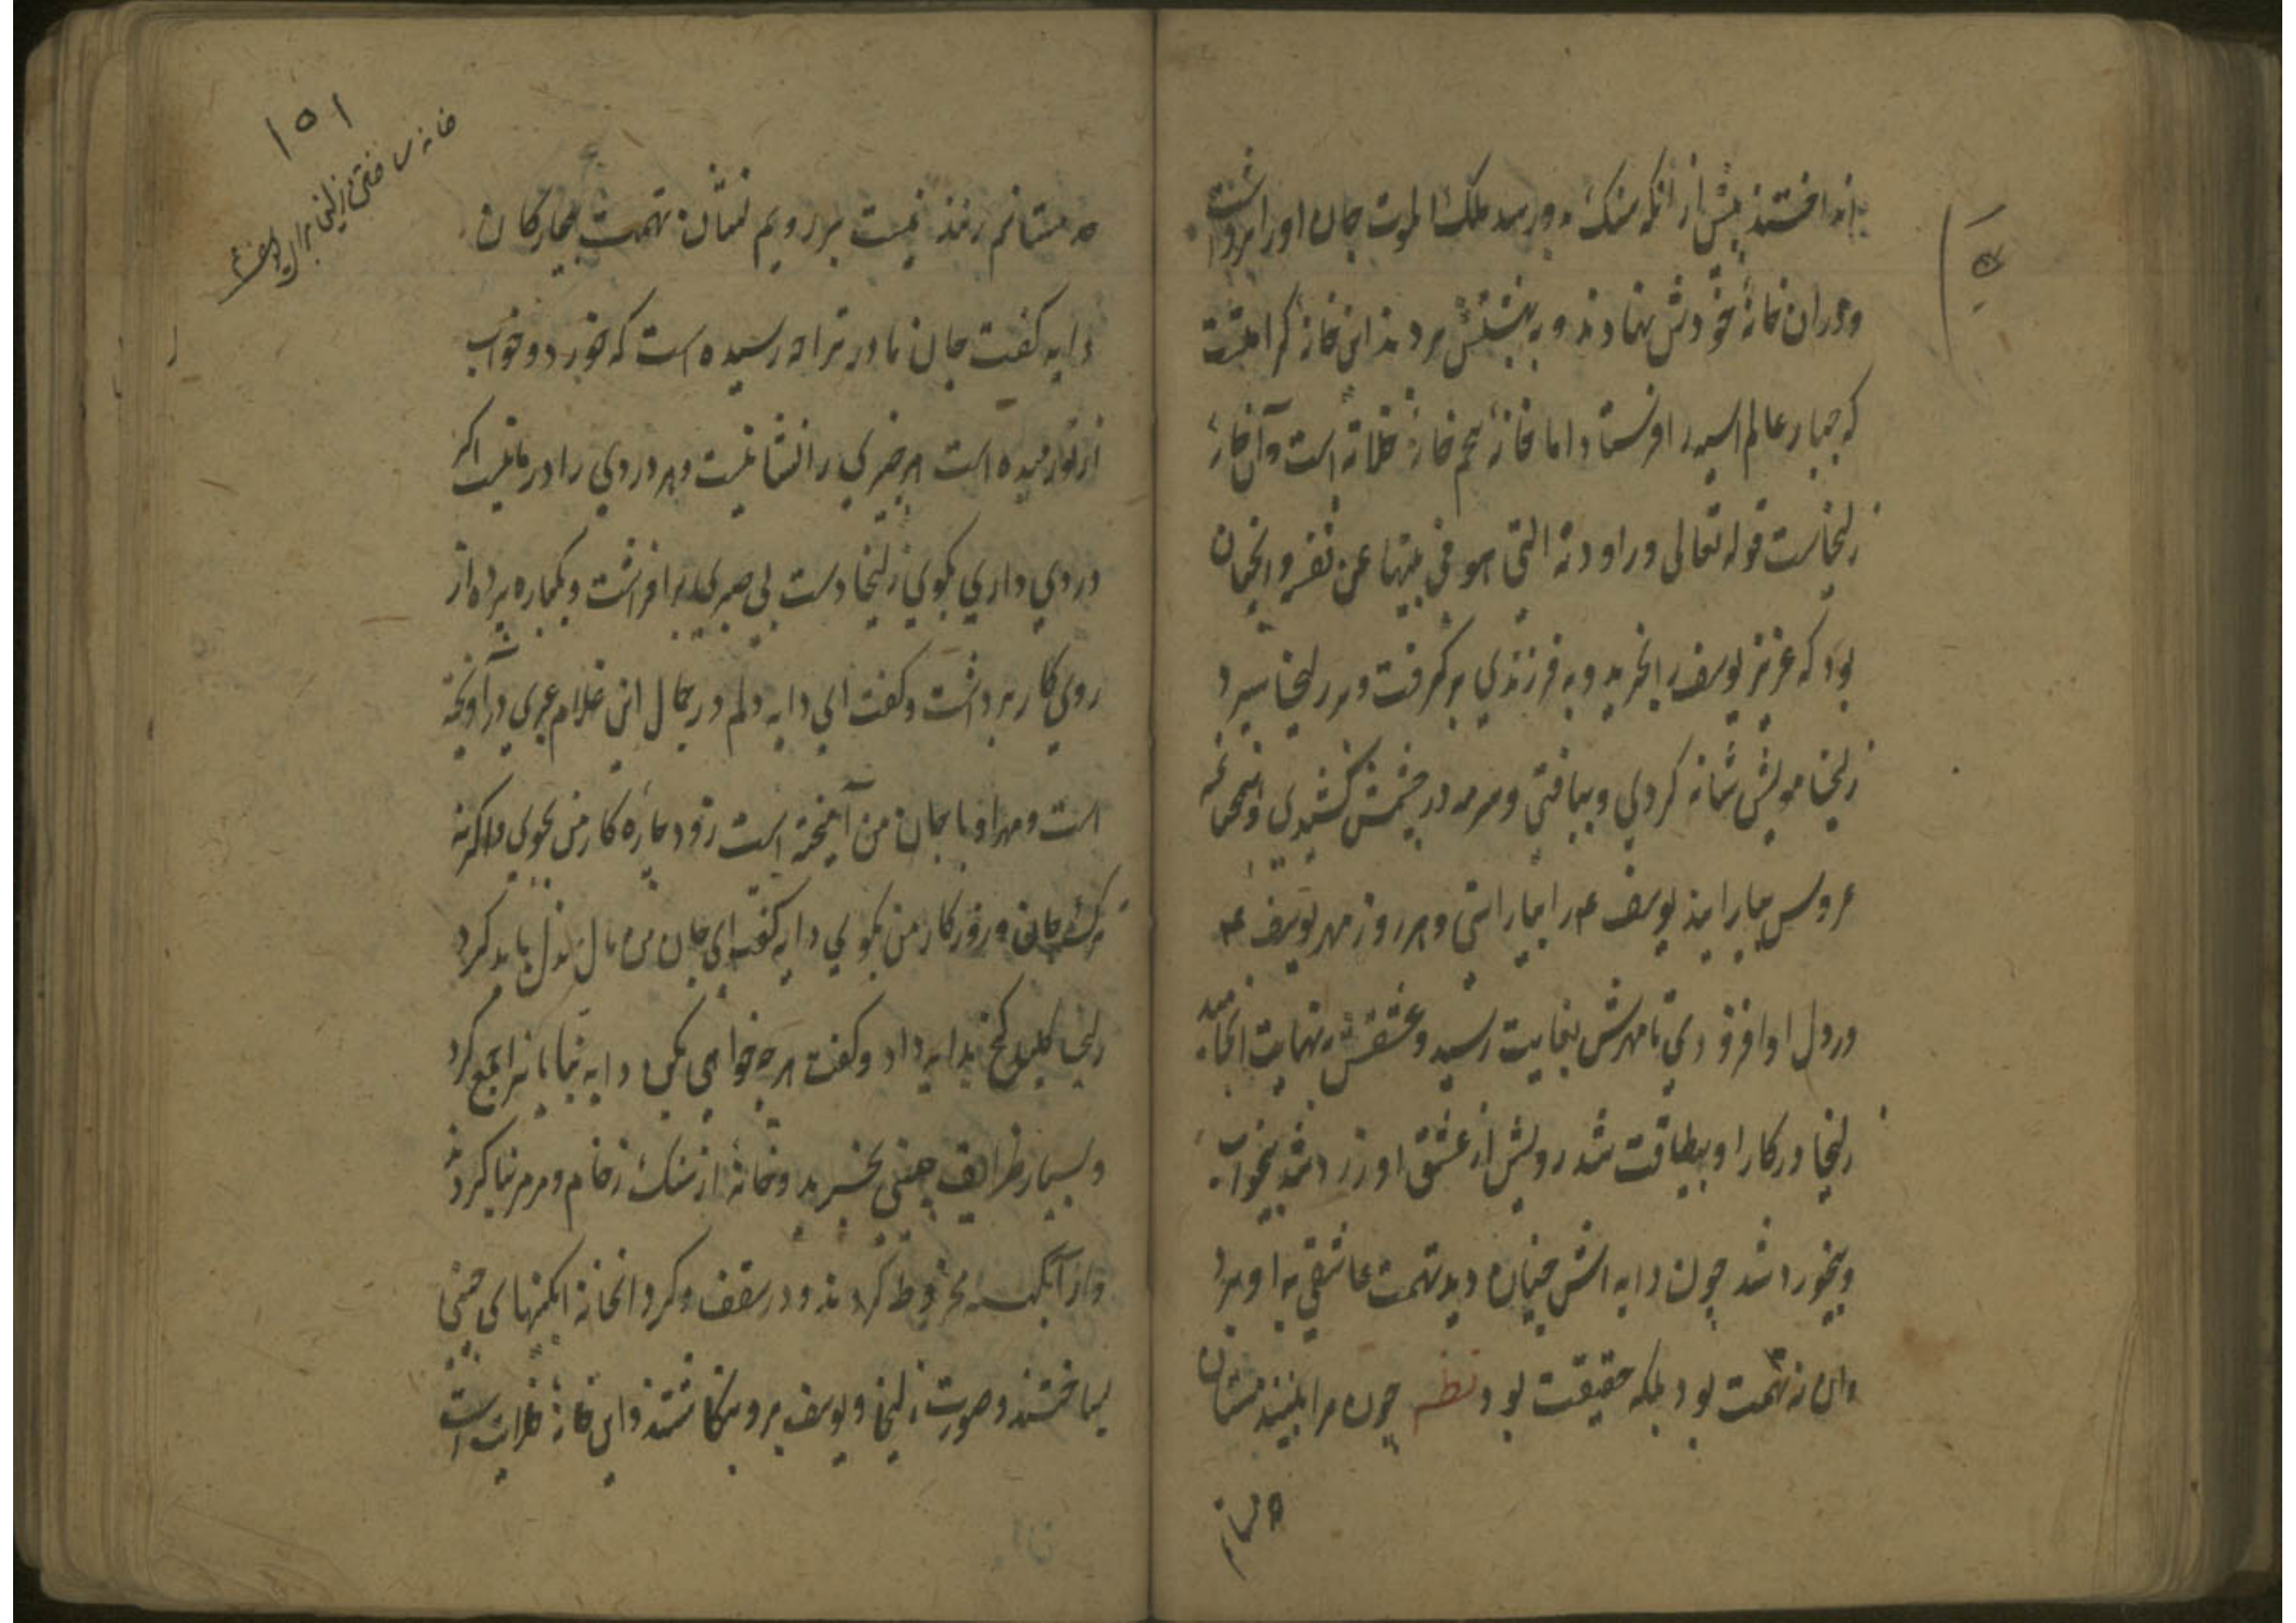 انداختند پیش از آنکه سنک بدو رسد ملک الموت جان او را برداشت
و در ان خانۀ خودش نهادند و به بهشتش بردند این خانه کرامتست
که جبار عالم اسیه را فرستاد اما خانۀ پنجم خانۀ ظلمانه است و آن خانۀ
زلیخاست قوله تعالی وراودته التی هو فی بیتها عن نفسه و انچنان
بود که عزیز یوسف را بخرید و به فرزندی برگرفت و بزلیخا سپرد
زلیخا مویش شانه کردی و ببافتی و سرمه در چشمش کشیدی و انچنانکه
عروس بیارایند یوسف ع را بیاراستی و هر روز مهر یوسف ع
در دل او افزودی تا مهرش بغایت رسید و عشقش به نهایت انجامید
زلیخا در کار او بیطاقت شد رویش از عشق او زرد شد بیخواب
و بیخورد شد چون دایه اش چنان دید تهمت عاشقی به او برد
و ان نه تهمت بود بلکه حقیقت بود نظم چون مرا بینند مستان
مستانم
۱۵۱
خانه ساختن زلیخا برای یوسف ع
مستانم زنند نیست بر رویم نشان تهمت بیچارکان
دایه کفت جان مادر ترا چه رسیده است که خورد و خواب
از تو رمیده است هر چیزی را نشانیست و هر دردی را درمانیست اکر
دردی داری بکوی زلیخا دست بی صبری برافراشت و یکباره پرده از
روی کار برداشت و کفت ای دایه دلم در جمال این غلام عبری درآویخته
است و مهر او با جان من آمیخته است زود چاره کار من بجوی واکرنه
ترک جان و روزکار من بکوی دایه کفت ای جان من مال بذل باید کرد
زلیخا کلید کنج بدایه داد و کفت هر چه خواهی بکن دایه بنایانرا جمع کرد
و بسیار ظرایف چینی بخرید و خانۀ از سنک رخام و مرمر بنا کردند
و از آبکینه مخروط کردند و در سقف و کرد انخانه ابکینهای چینی
بساختند و صورت زلیخا و یوسف برو بنکاشتند و این خانۀ ظلمات است